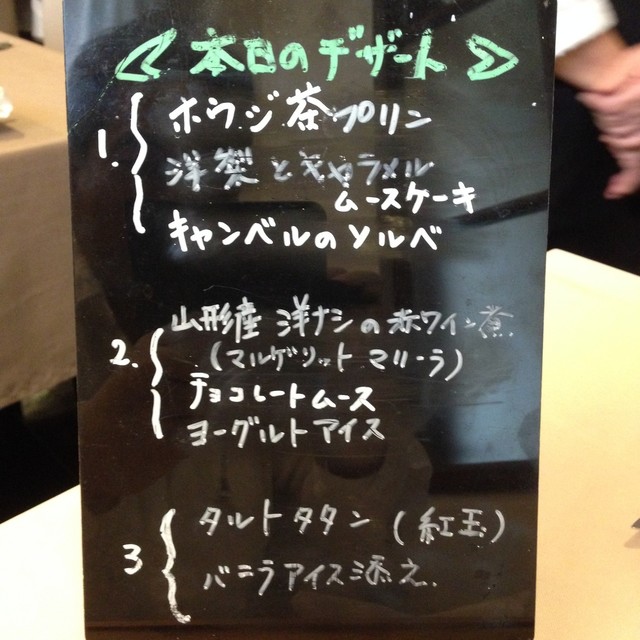 本日のデザート
1. ホウジ茶プリン
洋梨とキャラメル
ムースケーキ
キャンベルのソルベ
山形産 洋ナシの赤ワイン煮
2. (マルゲリット マリーラ)
チョコレートムース
ヨーグルトアイス
タルトタタン (紅玉)
3 バニラアイス添え